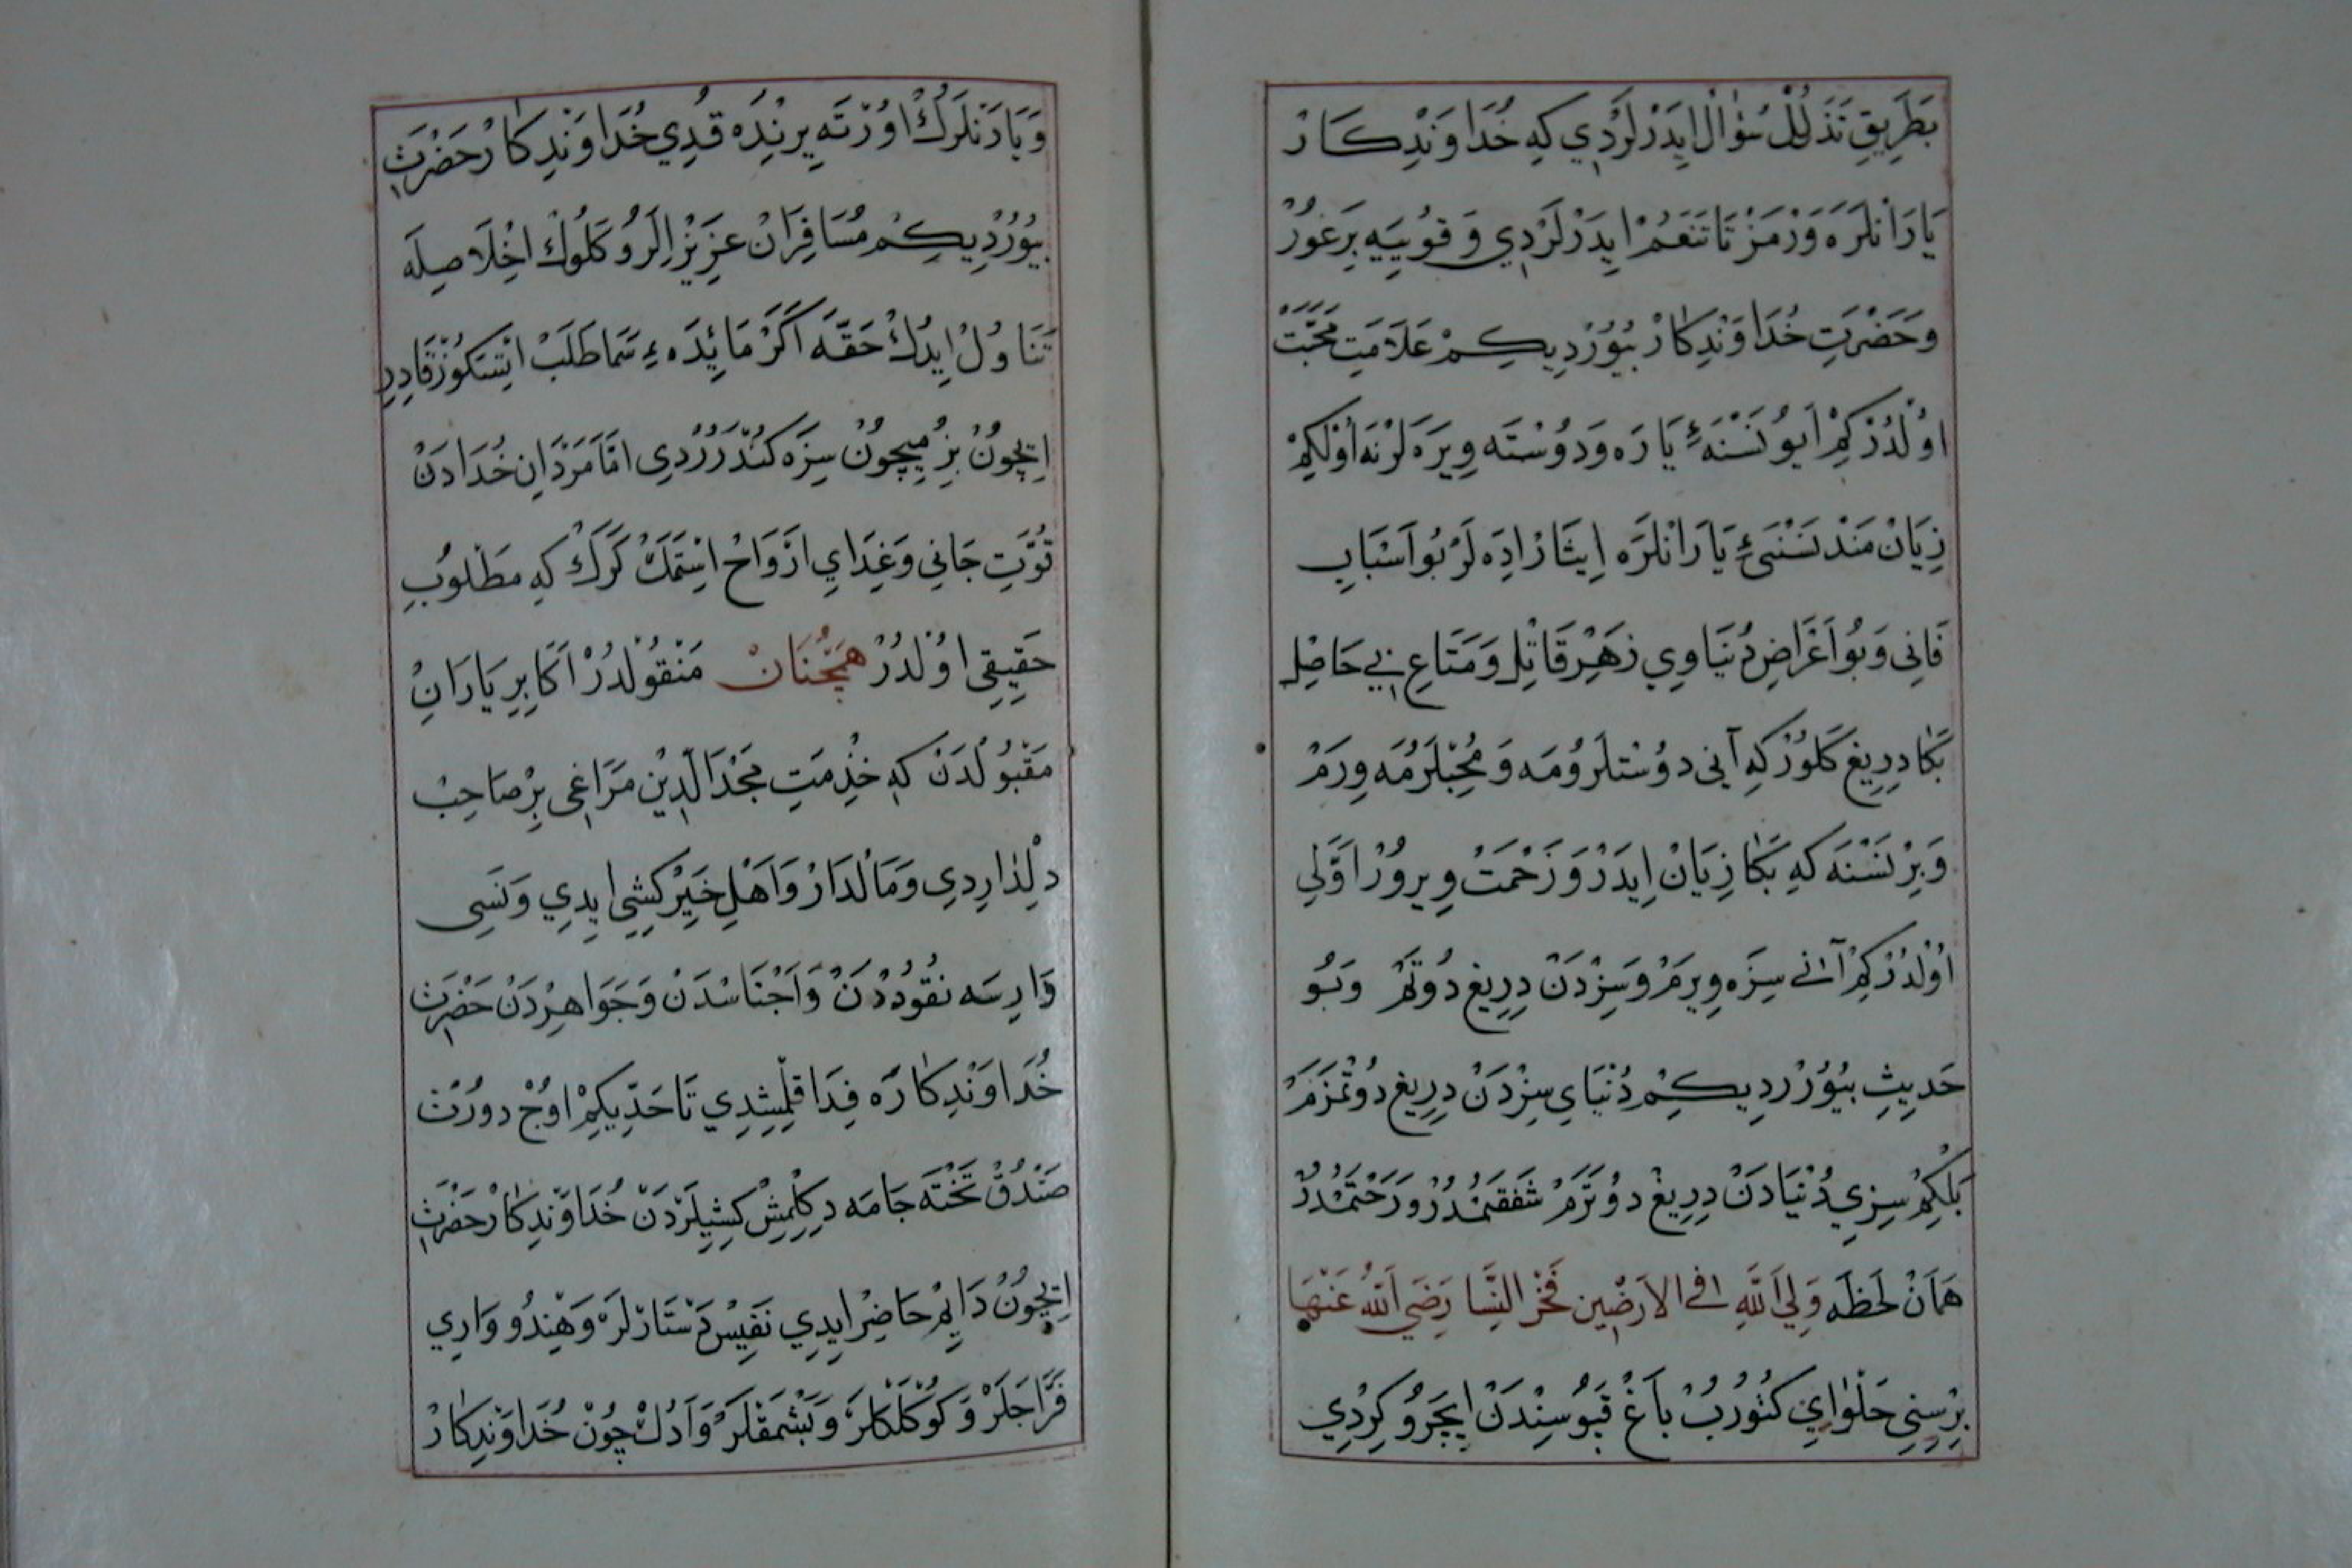 بَطَرِيقِ تَذَلُّلْ سُؤٰالْ اِيدَرْلَرْدِي كِهِ خُدَاوَنْدِكَارْ
يَارَانْلَرَه وَرْمَزْ تَا تَنَعُّمْ اِيدَرْلَرْدِي وَ قَوُيِيَه بَرَغُورْ
وَحَضْرَتِ خُدَاوَنْدِكَارْ بُيُوُرْدِيكِمْ عَلَامَتِ مَحَبَّتْ
اوُلْدُرْكِمْ اَيُو نَسْنَهَءِ يَارَه وَدوُسْتَه وِيرَه لَرْ نَه اوُلْكِمْ
زِيَانْ مَنْدْ نَسْنَىءِ يَارَانْلَرَه اِيثَارْ اِدَه لَرْ بُو اَسْبَابِ
فَانِى وَبُو اَغْرَاضِ دُنْيَاوِي زَهْرِ قَاتِلْ وَمَتَاعِ بِي حَاصِلْ
بَكَا دِرِيغْ كَلُورْ كِهِ آنِي دوُسْتلَروُمَه وَ مُحِبْلَرُمَه وِرَمْ
وَبِرْ نَسْنَه كِهِ بَكَا زِيَانْ اِيدَرْ وَ زَحْمَتْ وِيروُرْ اَوَّلِي
اوُلْدُرْكِمْ آنِي سِزَه وِيرَمْ وَسِزْدَنْ دِرِيغْ دُوتَمْ وَبُو
حَدِيثِ بُيُوُرْرْدِيكِمْ دُنْيَاي سِزْدَنْ دِرِيغْ دوُتْمَزَمْ
بَلْكِمْ سِزِي دُنْيَادَنْ دِرِيغْ دوُتَرَمْ شَفَقَتُمْدُرْ وَرَحْمَتُمْدُرْ
هَمَانْ لَحْظَه وَلِيُ اَللّٰهِ فِي الْاَرَضْين فَخْرُ النِّسَا رَضِيَ اَللّٰهُ عَنْهَا
بِرْ سِنِي حَلْوٰاي كَتُورُبْ بَاغْ قَپُوسِنْدَنْ اِيچَروُ كِرْدِي
وَيَارَنْلَرِكْ اوُرْتَه يِرِنْدَه قُدِي خُدَاوَنْدِكَارْ حَضْرَتِ
بُيُوُرْدِيكِمْ مُسَافِرَانْ عَزِيزْ اِلَرْ وُكَلُوكْ اِخْلَاصِلَه
تَنَاوُلْ اِيدُكْ حَقَّه اَكَرْ مَائِدَهءِ سَمَا طَلَبْ اِتْسَكُوزْ قَادِرِ
اِيچُونْ بِزُمِيچوُنْ سِزَه كُنْدَرُرْدِى امَّا مَرْدَانِ خُدَادَنْ
قُوَّتِ جَانِي وَغِدَايِ اَرْوَاحْ اسْتَمَكْ كَرَكْ كِهِ مَطْلوُبِ
حَقِيقِى اوُلْدُرْ هَمچُنَانْ مَنْقوُلْدُرْ اَكَابِرِ يَارَانِ
مَقْبوُلْدَنْ كِهِ خِذْمَتِ مَجْدَالدِينْ مَرَاغِى بِرْ صَاحِبْ
دلْ اِيدِي وَمَالْدَارْ وَاَهْلِ خَيِرْ كِشِي اِيدِي وَنَسِى
وَارِسَه نُقوُدُدْنْ وَاَجْنَاسْدَنْ وَجَوَاهِرْدَنْ حَضْرَتِ
خُدَاوَنْدِكَارَه فِدَا قِلْمِشِدِي تَا حَدِّيكِمْ اوُجْ دورُتْ
صَنْدُقْ تَخْتَه جَامَه دِكِلْمِشْ كِشِيلَرْدَنْ خُدَاوَنْدِكَارْ حَضْرَتِ
اِيچُونْ دَايِمْ حَاضِرْ اِيدِي نَفِيسْ دَسْتَارْلَرْ وَهِنْدوُ وَارِي
فَرَّاجَلَرْ وَكوُكَلَكْلَرْ وَبَشْمَقْلَرْ وَاَدُكْ چُونْ خُدَاوَنْدِكَارْ